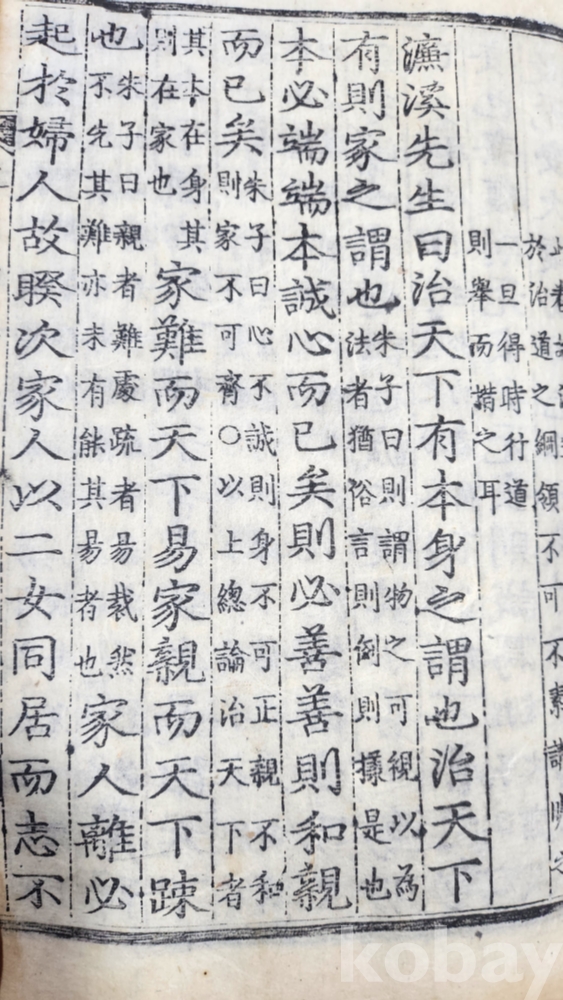 於治道之綱領不可不素講明之
一旦得時行道
則舉而措之耳
濂溪先生曰治天下有本身之謂也治天下
有則家之謂也朱子曰則謂物之可視以為
法者猶俗言則例則樣是也
本必端端本誠心而已矣則必善善則和親
而已矣朱子曰心不誠則身不可正親不和
則家不可齊○以上總論治天下者
其本在身其
則在家也家難而天下易家親而天下踈
也朱子曰親者難處疏者易裁然
不先其難亦未有能其易者也家人離必
起於婦人故睽次家人以二女同居而志不
kobay